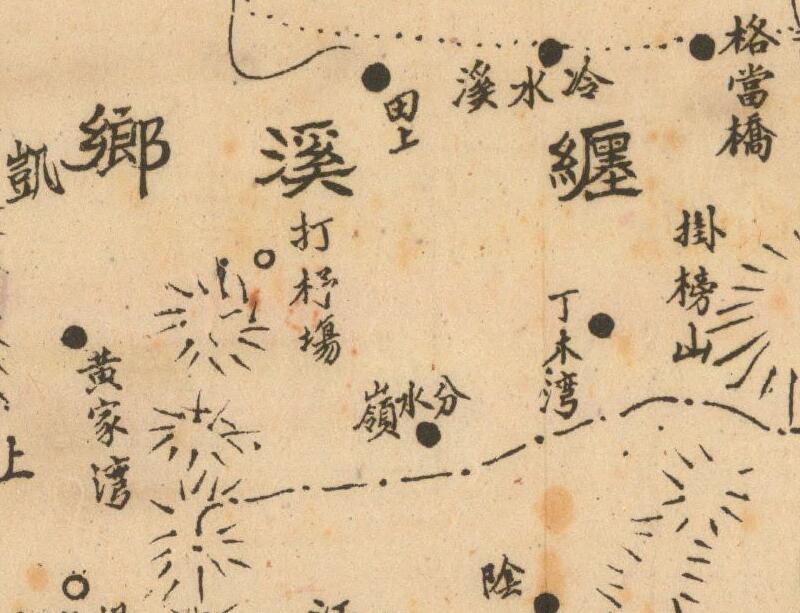 格當橋
冷水溪
田上
纏溪鄉
凱
打杼場
掛榜山
丁木湾
分水嶺
黃家湾
上
陰